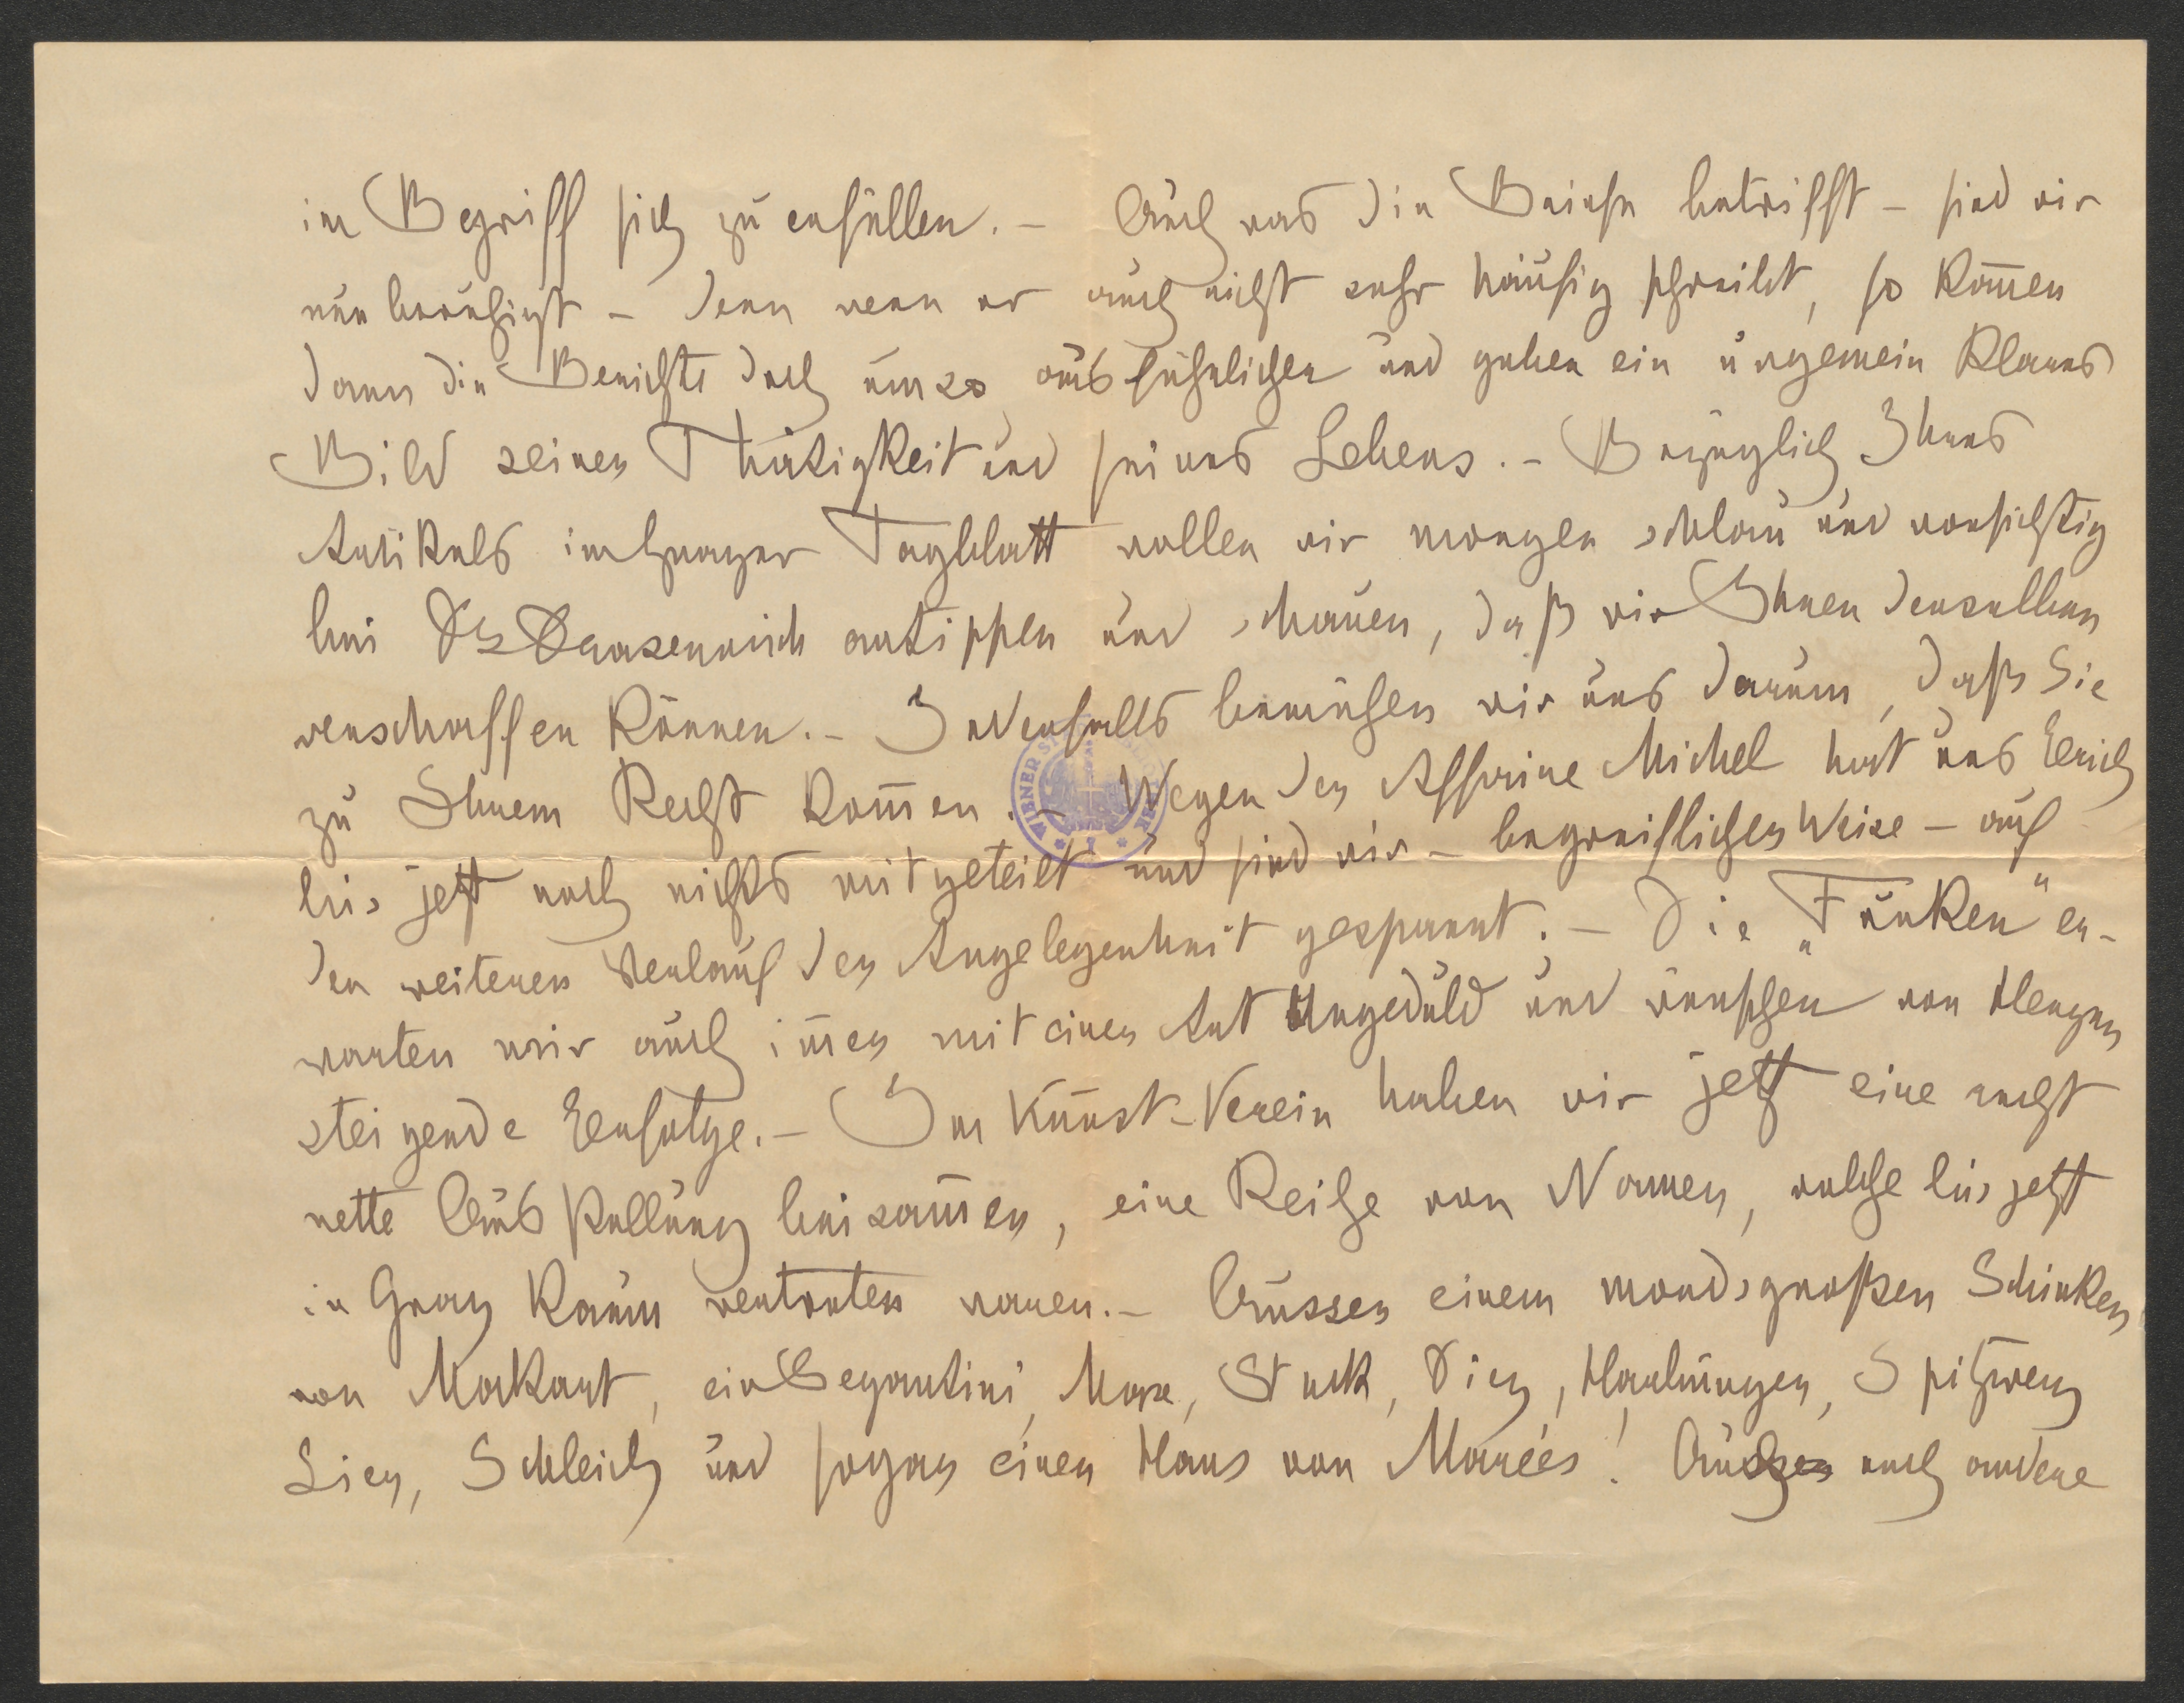 im Begriff sich zu erfüllen. – Auch was die Briefe betrifft – sind wir
nun beruhigt – denn wenn er auch nicht sehr häufig schreibt, so kom̅en
dann die Berichte doch umso ausführlicher und geben ein ungemein klares
Bild seiner Thätigkeit und seines Lebens. – Bezüglich Ihres
Artikels im Grazer Tagblatt wollen wir morgen schlau und vorsichtig
bei Dr antippen und schauen, daß wir Ihnen denselben
verschaffen können. – Jedenfalls bemühen wir uns darum, daß Sie
zu Ihrem Recht kom̅en. – Wegen der Affaire Michel hat uns Erich
bis jetzt noch nichts mitgeteilt und sind wir – begreiflicher Weise – auf
den weiteren Verlauf der Angelegenheit gespannt. – Die „Funken" er-
warten wir auch im̅er mit einer Art Ungeduld und wünschen von Herzen
steigende Erfolge. – Im Kunst-Verein haben wir jetzt eine recht
nette Ausstellung beisam̅en, eine Reihe von Namen, welche bis jetzt
in Graz kaum vertreten waren. – Ausser einem mordsgroßen Schinken
von Makart, ein Segantini, Max, Stuck, Diez, Harburger, Spitzweg
Lier, Schleich und sogar einen Hans von Marées! Ausser noch andere
WIENER